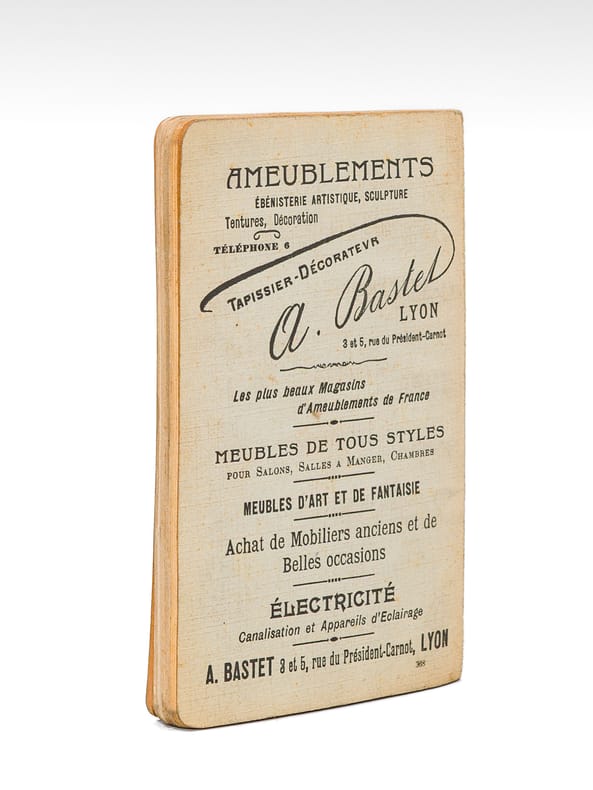 AMEUBLEMENTS
ÉBÉNISTERIE ARTISTIQUE, SCULPTURE
Tentures, Décoration
TÉLÉPHONE 6
TAPISSIER-DÉCORATEVR
A. Bastet
LYON
3 et 5, rue du Président-Carnot
Les plus beaux Magasins
d'Ameublements de France
MEUBLES DE TOUS STYLES
POUR SALONS, SALLES A MANGER, CHAMBRES
MEUBLES D'ART ET DE FANTAISIE
Achat de Mobiliers anciens et de
Belles occasions
ÉLECTRICITÉ
Canalisation et Appareils d'Eclairage
A. BASTET 3 et 5, rue du Président-Carnot, LYON
368